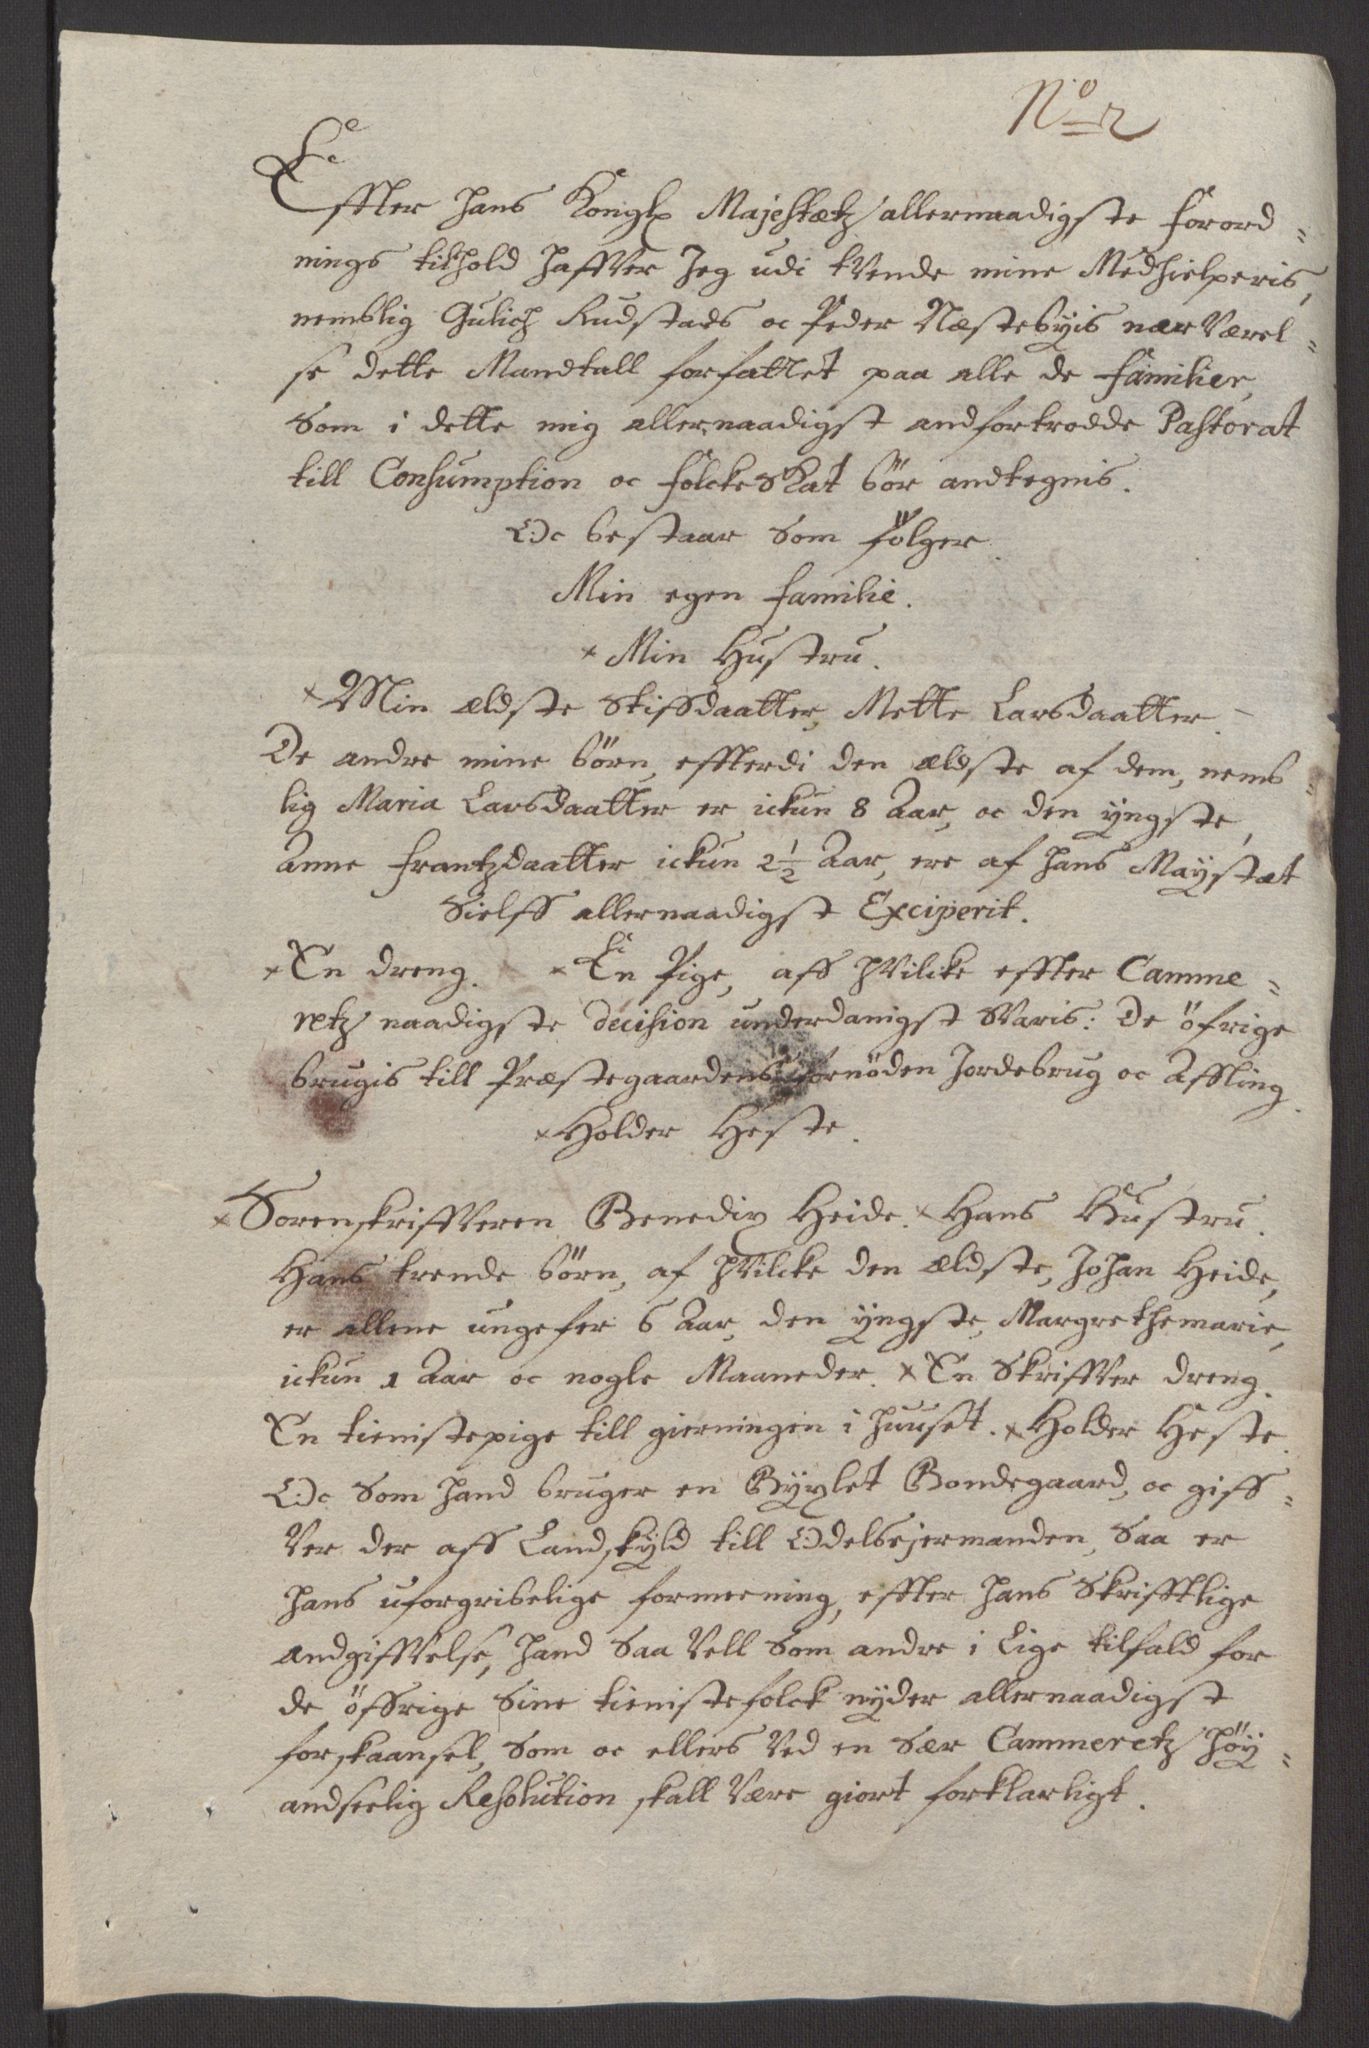 No 2
Effter hans Kongl Majestætz allernaadigste forord=
nings tilhold haffver Jeg udi tvende mine Medhielperis,
nemblig Gulich Rudstads oc Peder Næstebyis nærværel=
se dette Mandtall forfattet paa alle de familier,
som i dette mig allernaadigst andfortrodde Pastorat
till Consumption oc folckeskat bör andtegnis.
Oc bestaar som fölger.
Min egen familie.
× Min Hustru.
× Min ældste Stiffdaatter, Mette Larsdaatter.
De andre mine börn, effterdi den ældste af dem, nemb=
lig Maria Larsdaatter er ickun 8 Aar, oc den yngste,
Anne frantzdaatter ickun 2½ Aar, ere af hans Maystæt
sielff allernaadigst Exciperit.
× En dreng. × En Pige, aff hvilcke effter Camme=
retz naadigste decision underdanigst svaris: De öfrige
brugis till Præstegaardens fornöden Jordebrug oc Affling.
× Holder Heste.
× Sorenskriffveren Benedix Heide. × Hans Hustru.
Hans trende börn, af hvilcke den ældste, Johan Heide,
er allene ungefer 6 Aar, den yngste, Margrethemarie,
ickun 1 Aar oc nogle Maaneder. × En Skriffver dreng.
En tienistepige till gierningen i huuset. × Holder Heste.
Oc som hand bruger en Byxlet Bondegaard, oc giff=
ver der aff Landskyld till Odelsejermanden, saa er
hans uforgribelige formeening, effter hans skrifftlige
andgiffvelse, hand saa vell som andre i lige tilfald for
de öffrige sine tienistefolck nyder allernaadigst
forskaansel, som oc ellers ved en sær Cammeretz höy=
andseelig Resolution skall være giort forklarligt.